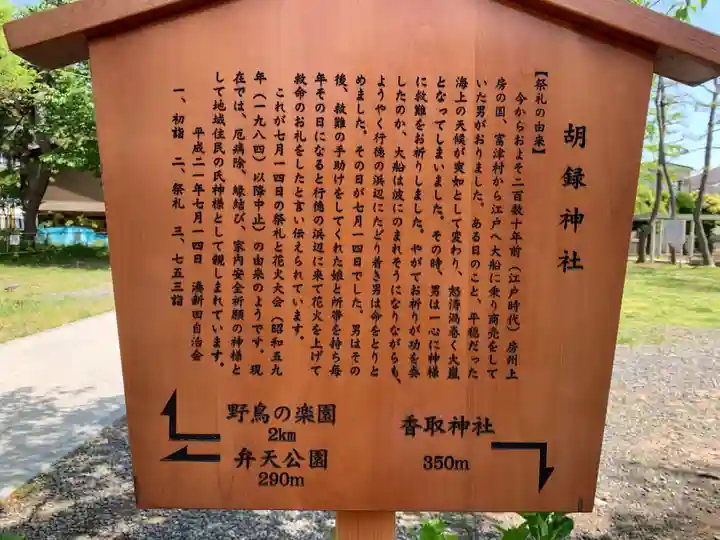 胡録神社
【祭礼の由来】
今からおよそ二百数十年前(江戸時代)房州上
房の国、富津村から江戸へ大船に乗り商売をして
いた男がおりました。ある日のこと、平穏だった
海上の天候が突如として変わり、怒濤渦巻く大嵐
となってしまいました。その時、男は一心に神様
に救難をお祈りしました。やがてお祈りが功を奏
したのか、大船は波にのまれそうになりながらも、
ようやく行徳の浜辺にたどり着き男は命をとりと
めました。その日が七月一四日でした。男はその
後、救難の手助けをしてくれた娘と所帯を持ち毎
年その日になると行徳の浜辺に来て花火を上げて
救命のお礼をしたと言い伝えられています。
これが七月一四日の祭礼と花火大会(昭和五九
年(一九八四)以降中止)の由来のようです。現
在では、厄病除、縁結び、家内安全祈願の神様と
して地域住民の氏神様として親しまれています。
平成二一年七月一四日 湊新田自治会
一、初詣 二、祭礼 三、七五三詣
野鳥の楽園
2km
弁天公園
290m
香取神社
350m